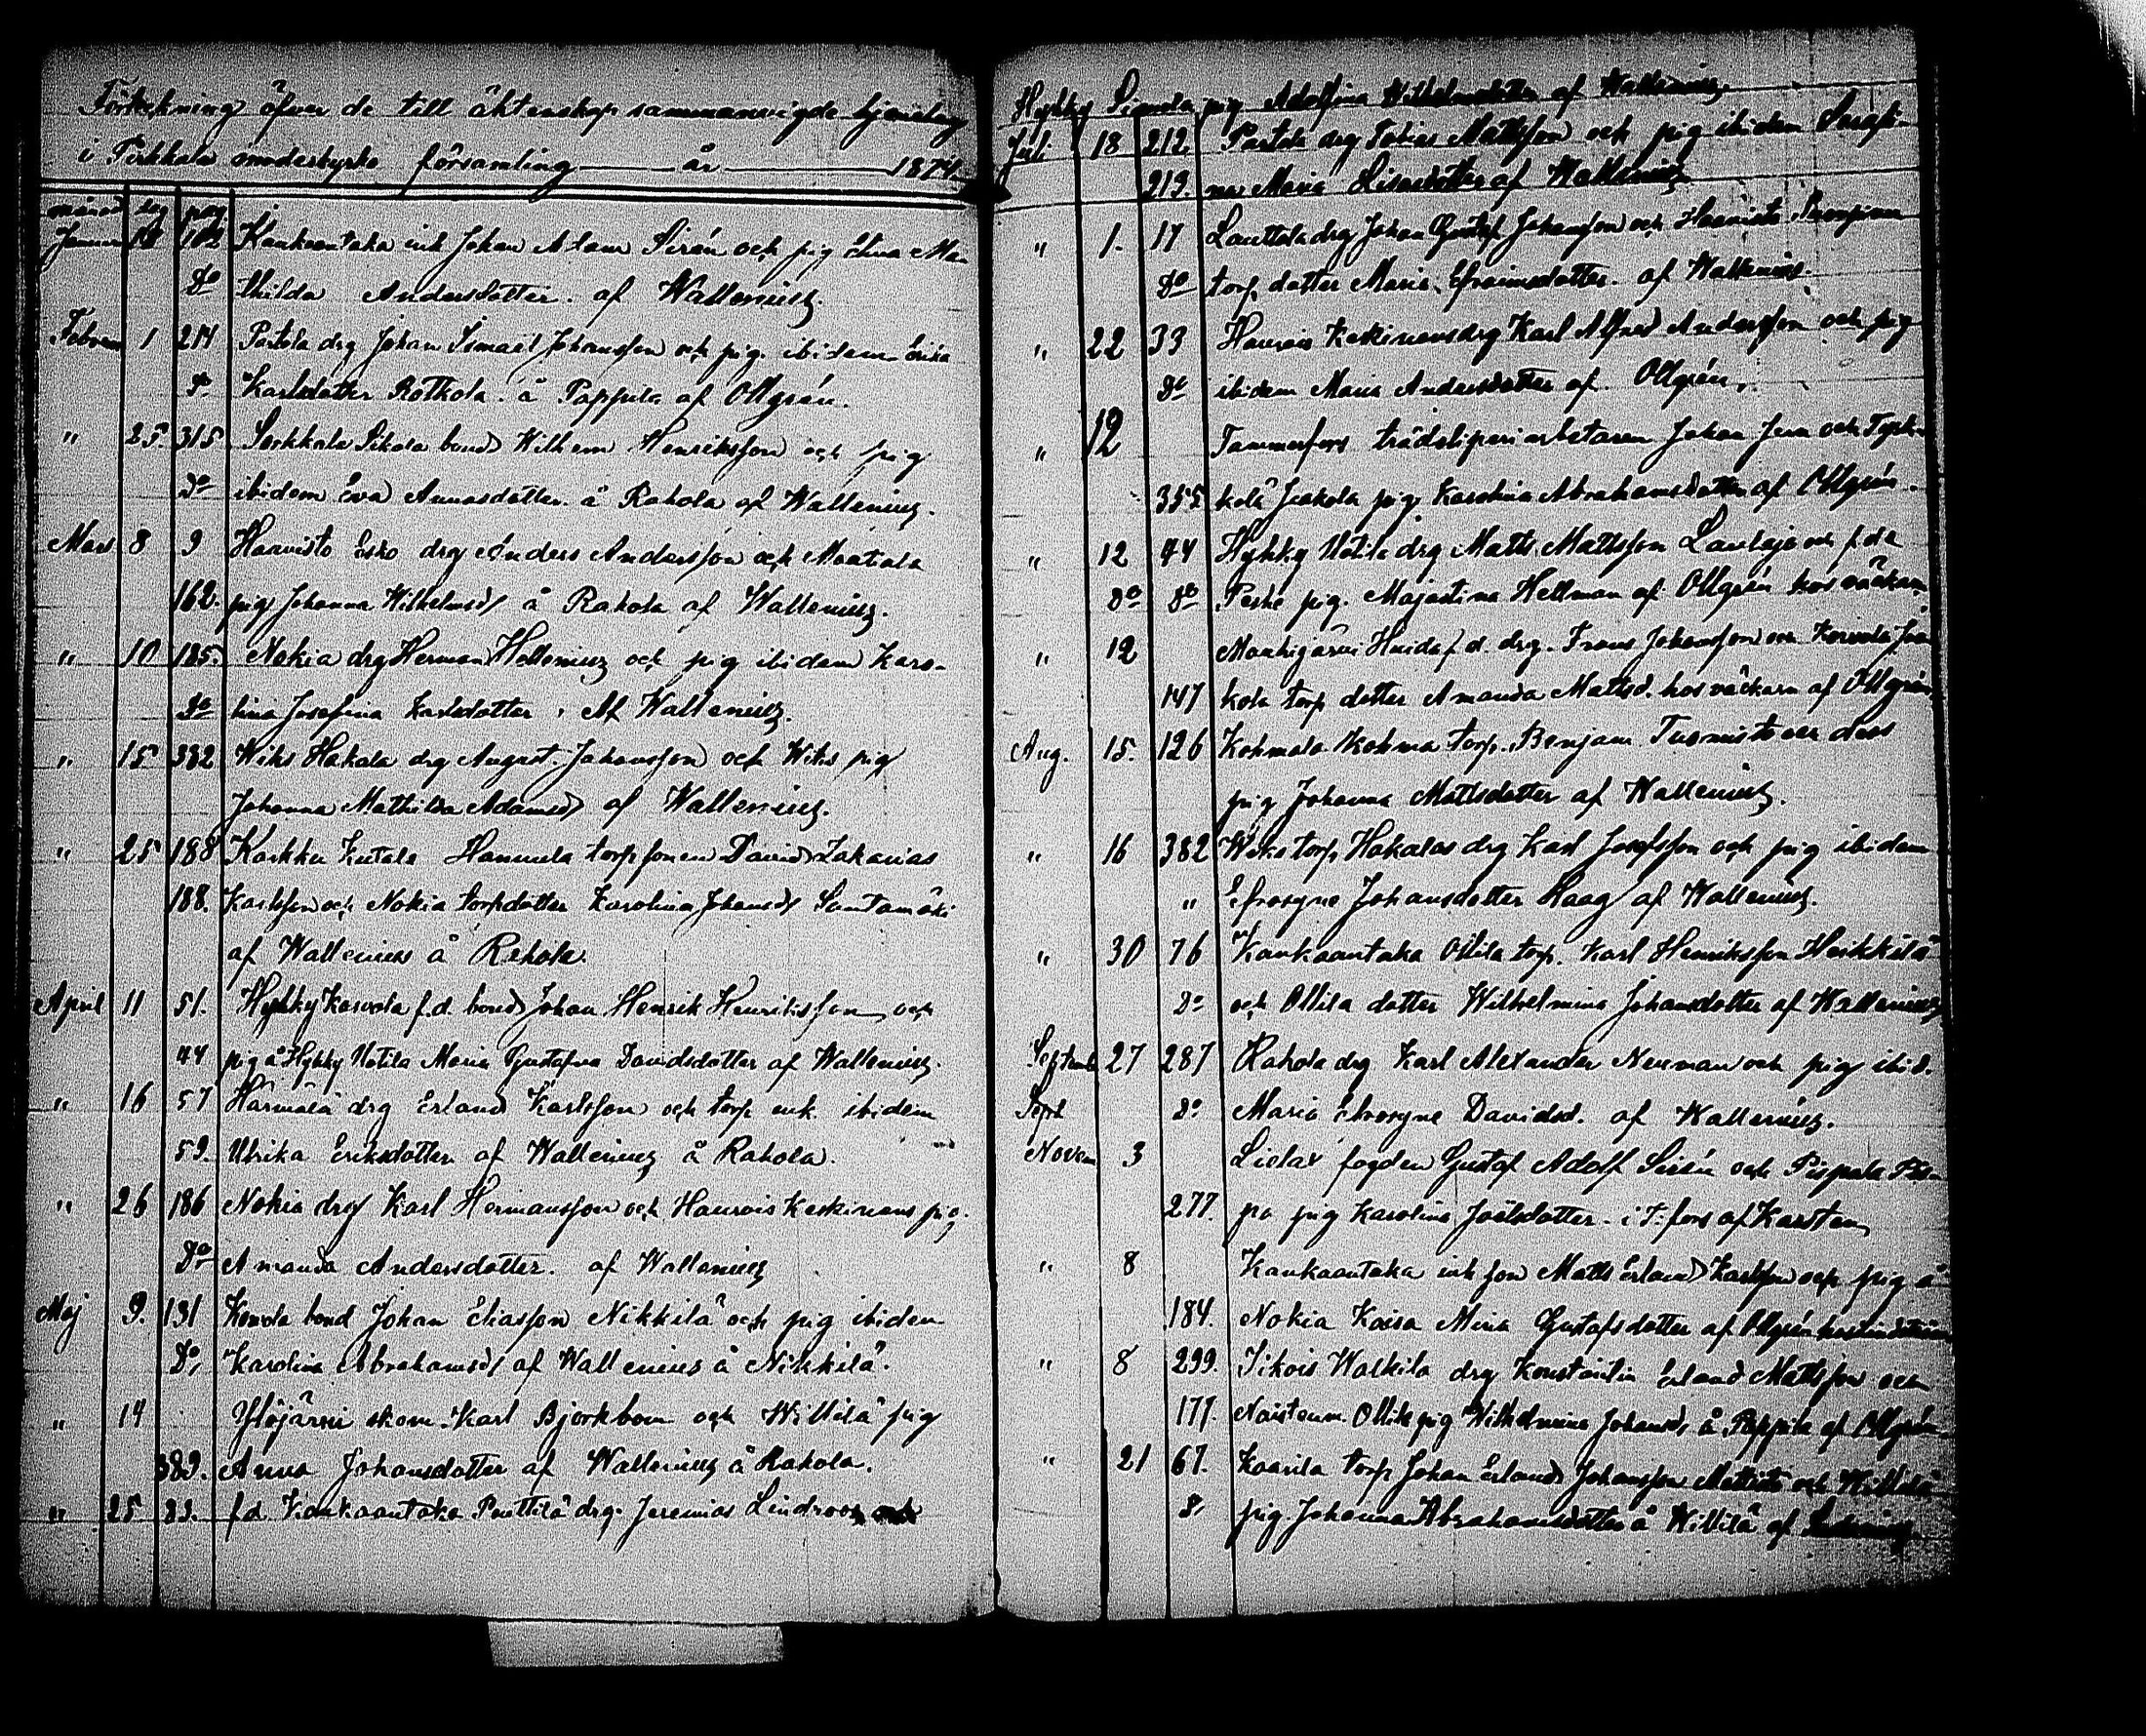 Förteckning öfver de till äktenskap sammanvigde hjonelag
i Pirkkala moderkyrko församling år 1874
månad dag pag
Januar 18 182 Kankaantaka inh Johan Adam Sirén och pig Eva Ma-
Do thilda Andersdotter. af Wallenius.
Februar 1 214 Partola drg Johan Ismael Johansson och pig. ibidem Erika
Do Karlsdotter Rotkola. å Pappila af Ollgrén.
" 25. 315 Sorkkala Sikola bond Wilhem Henriksson och pig
Do ibidem Eva Annasdotter. å Rahola af Wallenius.
Mars 8 9 Haavisto Esko drg Anders Andersson och Maatala
162. pig Johanna Wilhelmsd å Rahola af Wallenius.
" 10 185. Nokia drg Herman Hellenius och pig ibidem Karo-
Do lina Josefina Karlsdotter. Af Wallenius.
" 15 382 Wiks Hakala drg August Johansson och Wiks pig
Johanna Mathilda Adamsd af Wallenius.
" 25 188 Karkku Kutala Hannula torp sonen David Zakarias
188. Karlsson och Nokia torpdotter Karolina Johansd Santamäki
af Wallenius å Rahola.
April 11 51. Hyhky Karvola f.d. bond Johan Henrik Henriksson och
44 pig å Hyhky Uotila Maria Gustafva Davidsdotter af Wallenius.
" 16 57 Härmälä drg Erland Karlsson och torp enk. ibidem
59. Ulrika Eriksdotter af Wallenius å Rahola.
" 26 186 Nokia drg Karl Hermansson och Haurois Keskinens pig.
Do Amanda Andersdotter. af Wallenius
Maj 9. 131 Konda bond Johan Eliasson Nikkilä och pig ibidem
Do, Karolina Abrahamsd af Wallenius å Nikkilä.
" 14 Ylöjärvi skom. Karl Bjorkbom och Willilä pig
389. Anna Johansdotter af Wallenius å Rahola.
" 25 83. f.d. Kankaantaka Penttilä drg. Jeremias Lindroos och
Hyhky Pispala pig Adolfina Wilhelmsdotter af Wallenius.
Juli 18 212. Partola drg Tobias Mattsson och pig ibidem Serafi-
213. na Maria Lisasdotter af Wallenius
" 1. 17 Lauttala drg Johan Gustaf Johansson och Haavisto
Do torp dotter Maria Efraimsdotter. af Wallenius.
" 22 33 Haurois Keskinens drg Karl Alfred Andersson och pig
Do ibidem Maria Andersdotter af Ollgrén.
" 12 Tammerfors trädsliperi arbetaren Johan och
355 Jaakola pig Karolina Abrahamsdotter af Ollgrén.
" 12 44 Hyhky Uotila drg Matts Mattsson och f.d.
Do Do pig. Majastina Hellman af Ollgrén hos väckarn
" 12 f.d. drg. Frans Johansson och
147 kola torp dotter Amanda Mattsd. hos väckarn af Ollgrén
Aug. 15. 126 Kohmala Kohma torp. Benjam. Tuomisto och dess
pig Johanna Mattsdotter af Wallenius.
" 16 382 Wiks torp Hakalas drg Karl Josefsson och pig ibidem
" Efrosyne Johansdotter Haag af Wallenius.
" 30 76 Kankaantaka Ollila torp. Karl Henriksson Heikkilä
Do och Ollila dotter Wilhelmina Johansdotter af Wallenius
Septemb 27 287 Rahola drg Karl Alexander Neuman och pig ibid.
Sept Do Maria Efrosyne Davidsd. af Wallenius.
Novem 3 Lielax fogden Gustaf Adolf Sirén och Pispala
277. pa pig Karolina Joëlsdotter i T:fors af Karsten
" 8 Kankaantaka inh son Matts Erland Karlsson och pig å
184. Nokia Kaisa Mina Gustafsdotter af Ollgrén
" 8 299. Sikois Walkila drg Konstantin Erland Mattsson och
177. Naistenm. Ollila pig Wilhelmina Johansd å Pappila af Ollgrén
" 21 67. Kaarila torp Johan Erland Johansson och Willilä
Do pig Johanna Abrahamsdotter å Willilä af